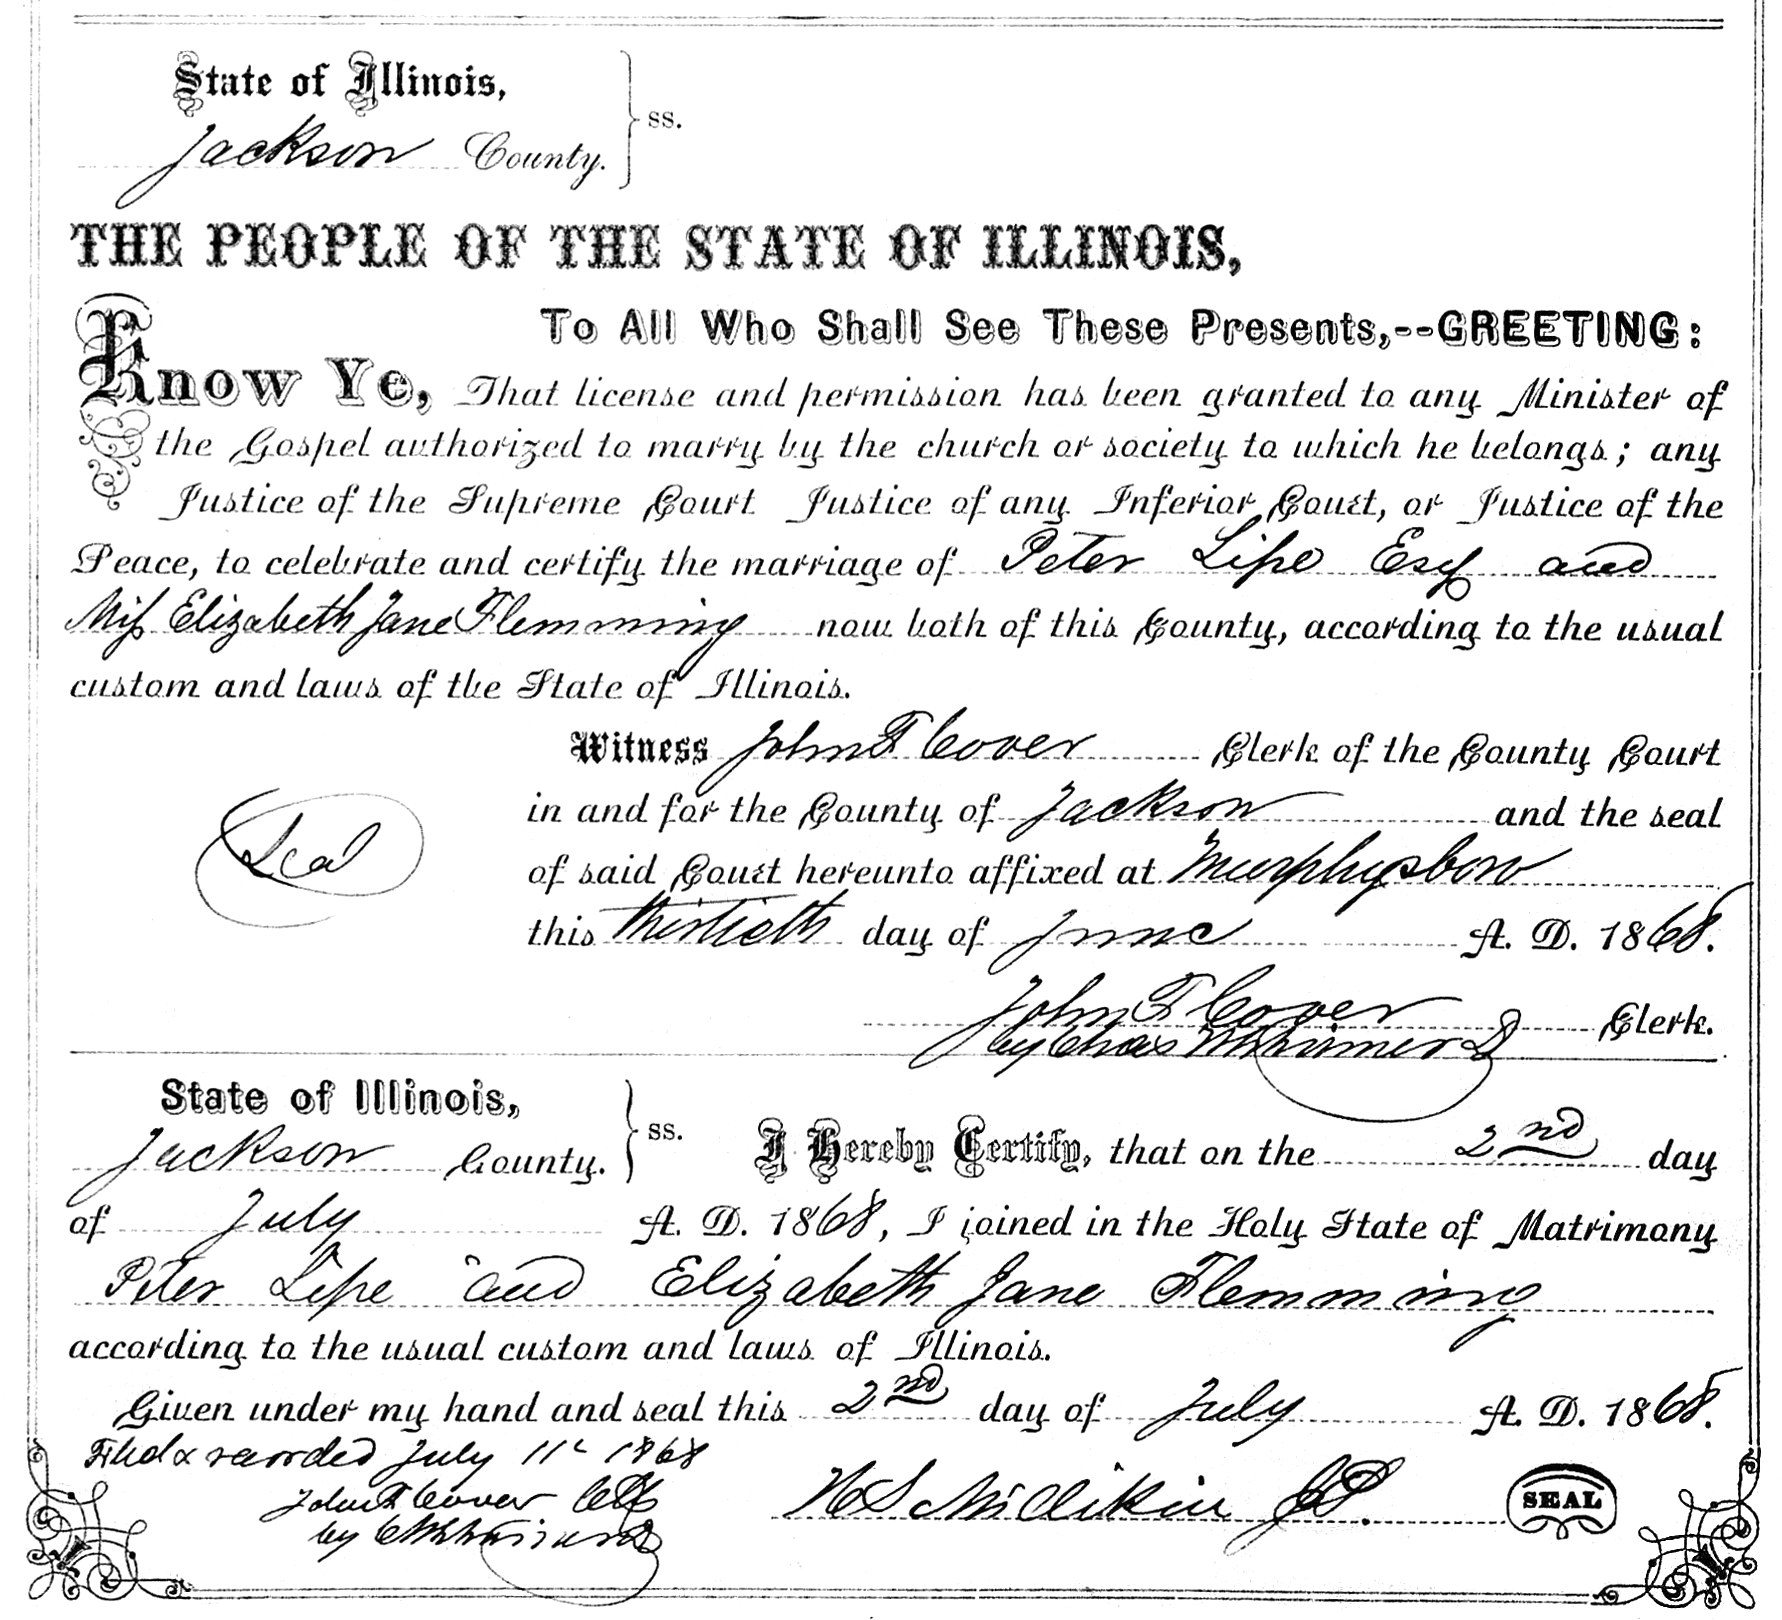 State of Illinois,
Jackson County. } ss.
THE PEOPLE OF THE STATE OF ILLINOIS,
To All Who Shall See These Presents,--GREETING:
Know Ye, That license and permission has been granted to any Minister of
the Gospel authorized to marry by the church or society to which he belongs; any
Justice of the Supreme Court Justice of any Inferior Court, or Justice of the
Peace, to celebrate and certify the marriage of Peter Lipe Esq and
Miss Elizabeth Jane Flemming now both of this County, according to the usual
custom and laws of the State of Illinois.
Witness John F Cover Clerk of the County Court
in and for the County of Jackson and the seal
Seal
of said Court hereunto affixed at Murphysboro
this thirtieth day of June A. D. 1868.
John F Cover Clerk.
by Chas
State of Illinois,
Jackson County. } ss. I Hereby Certify, that on the 2nd day
of July A. D. 1868, I joined in the Holy State of Matrimony
Peter Lipe and Elizabeth Jane Flemming
according to the usual custom and laws of Illinois.
Given under my hand and seal this 2nd day of July A. D. 1868.
Filed & recorded July 11 1868
John F Cover Clk
by
J.P. SEAL